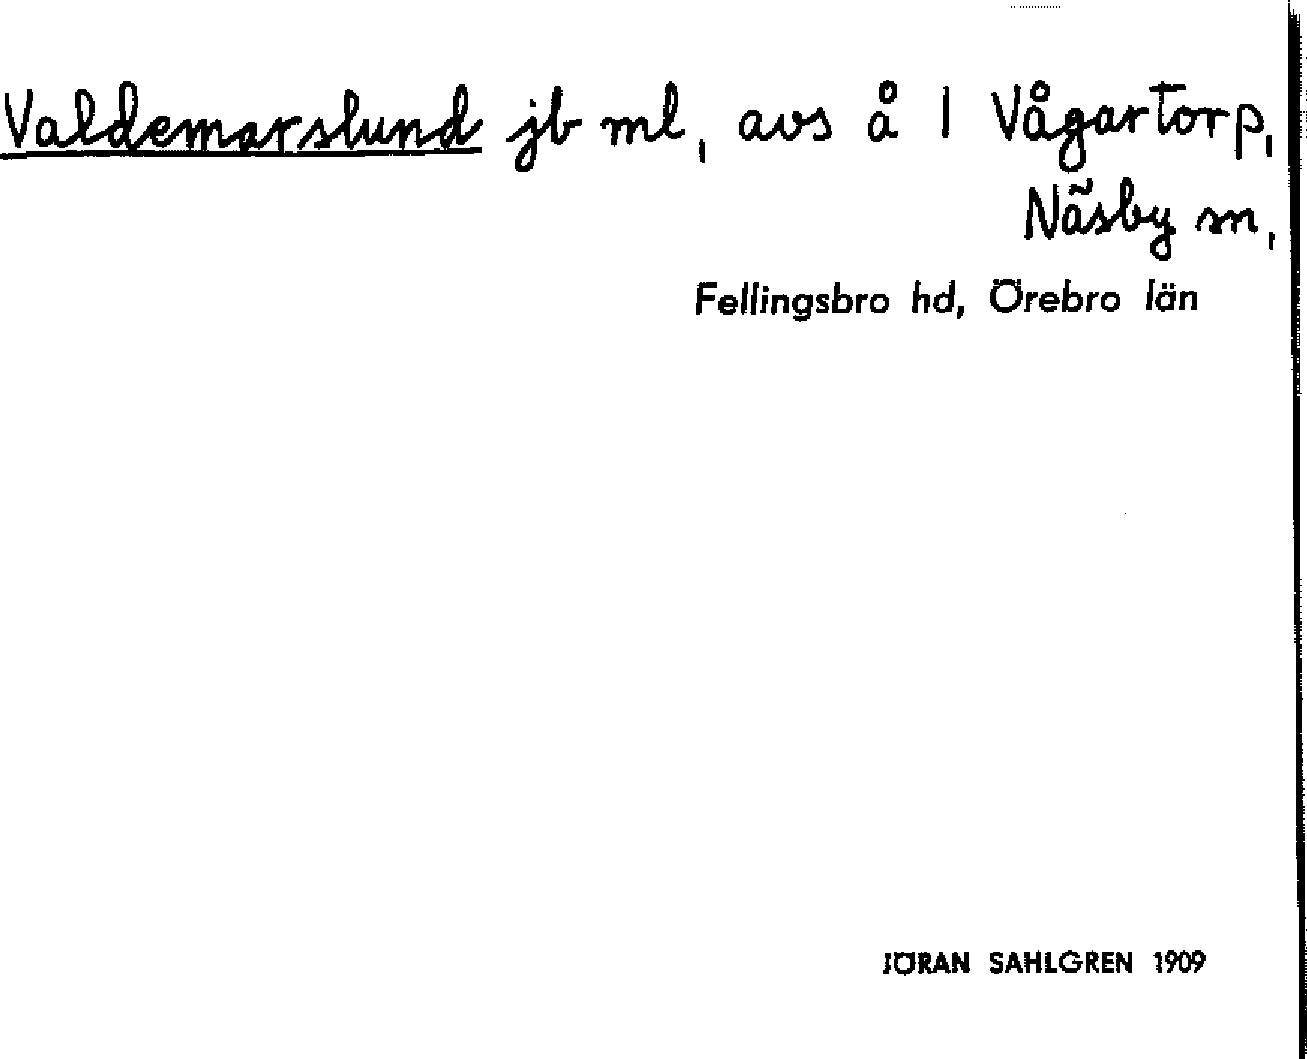 Valdemarslund jb ml, avs å 1 Vågartorp,
Näsby sn,
Fellingsbro hd, Örebro län
JÖRAN SAHLGREN 1909